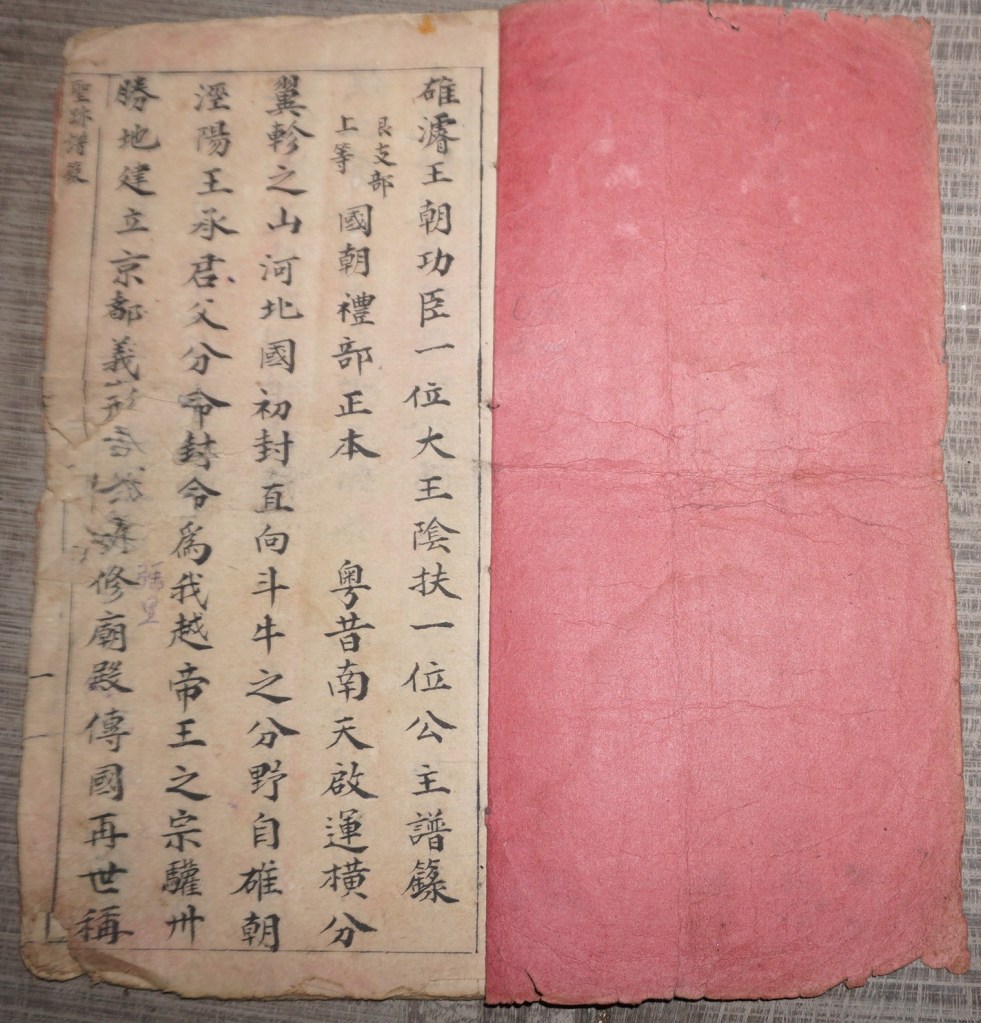 雄濬王朝功臣一位大王陰扶一位公主譜籙
艮支部
上等
國朝禮部正本 粤昔南天啟運橫分
翼軫之山河北國初封直向斗牛之分野自雄朝
涇陽王承君父分命封令爲我越帝王之宗驩卅
勝地建立京都義 修廟殿傳國再世稱
聖跡譜籙
一